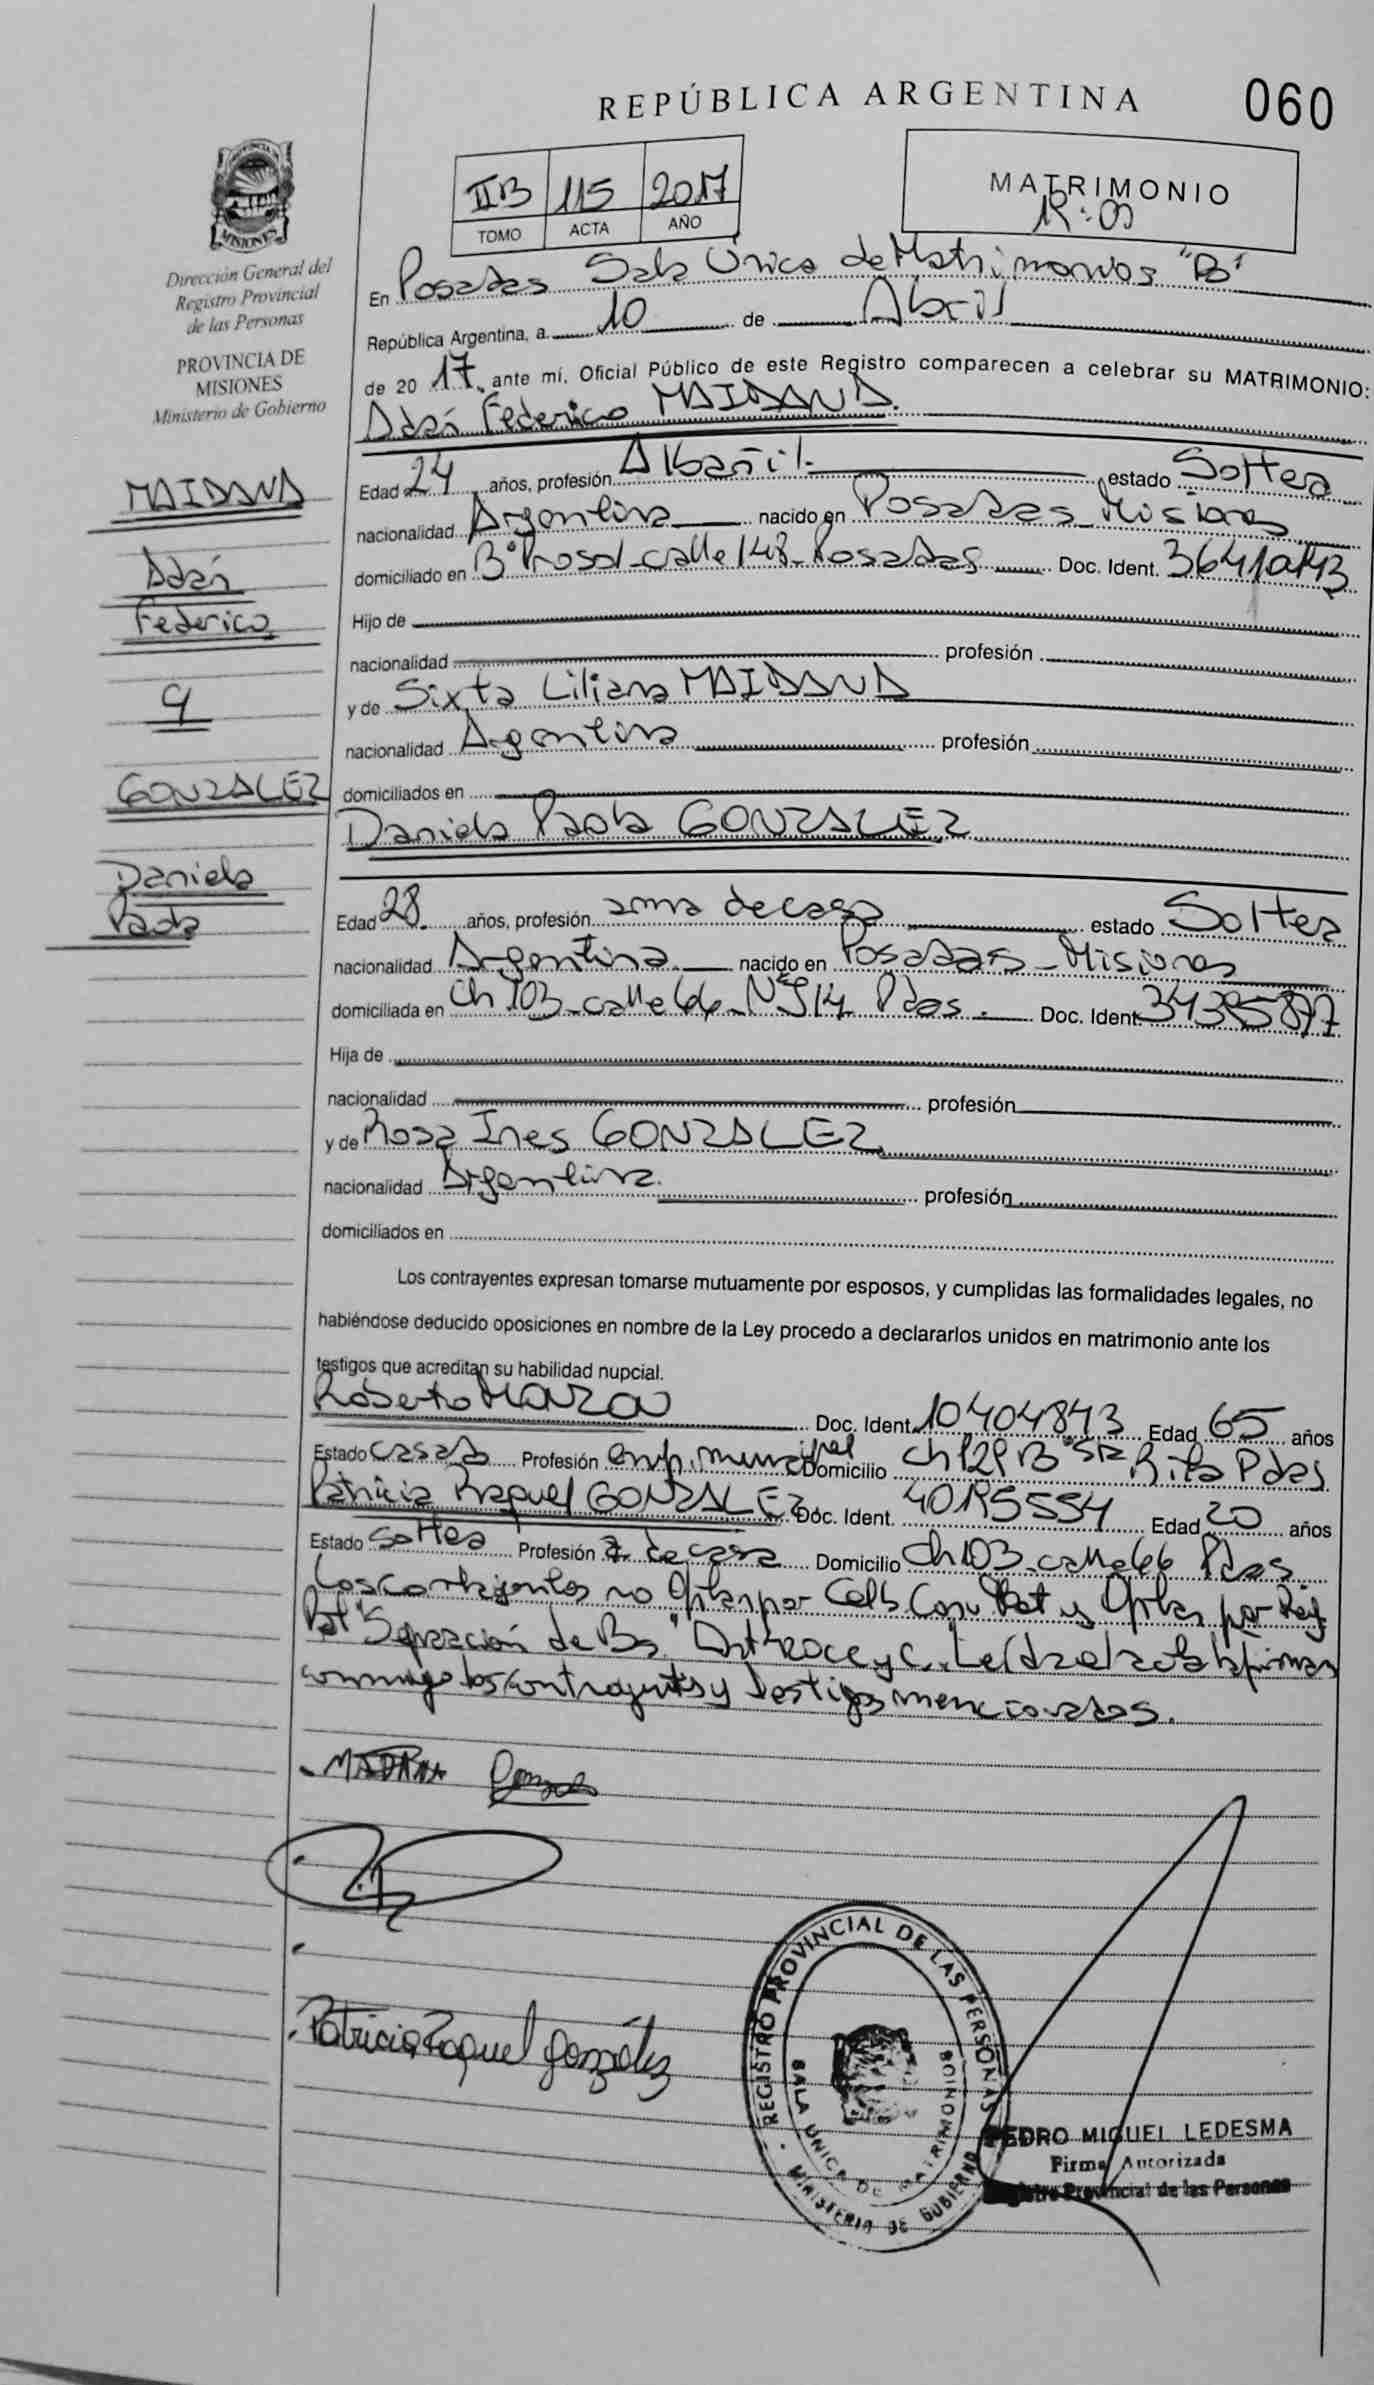 REPÚBLICA ARGENTINA
060
IIB 115 2017
TOMO ACTA AÑO
MATRIMONIO
PROVINCIA DE
MISIONES
Dirección General del
Registro Provincial
de las Personas
PROVINCIA DE
MISIONES
Ministerio de Gobierno
En Posadas Sala Única de Matrimonios "B"
República Argentina, a 10 de Abril
de 2017, ante mí, Oficial Público de este Registro comparecen a celebrar su MATRIMONIO:
Adán Federico MAIDANA.
Edad 24 años, profesión Albañil estado Soltero
nacionalidad Argentina nacido en Posadas Misiones
domiciliado en Bº Prosol calle 148 Posadas Doc. Ident. 36410143
Hijo de
nacionalidad profesión
y de Sixta Liliana MAIDANA
nacionalidad Argentina profesión
domiciliados en
Daniela Paola GONZALEZ
Edad 28 años, profesión ama de casa estado Soltera
nacionalidad Argentina nacido en Posadas - Misiones
domiciliada en Ch 103 - calle 66 - Nº 514 Pdas. Doc. Ident. 34395877
Hija de
nacionalidad profesión
y de Rosa Ines GONZALEZ
nacionalidad Argentina. profesión
domiciliados en
Los contrayentes expresan tomarse mutuamente por esposos, y cumplidas las formalidades legales, no
habiéndose deducido oposiciones en nombre de la Ley procedo a declararlos unidos en matrimonio ante los
testigos que acreditan su habilidad nupcial.
Roberto MONZON Doc. Ident. 10404843 Edad 65 años
Estado casado Profesión emp. municipal Domicilio Ch 129 Bº Sta Rita Pdas
Patricia Raquel GONZALEZ Doc. Ident. 40195554 Edad 20 años
Estado Soltera Profesión a. de casa Domicilio Ch 103 - calle 66 Pdas.
Los contrayentes no Optan por Celb. Conv. Pat y Optan por Reg.
Pat "Separación de Bs" Leída el acta la firman
conmigo los contrayentes y testigos mencionados.
MAIDANA
Adán
Federico
y
GONZALEZ
Daniela
Paola
Patricia Raquel González
REGISTRO PROVINCIAL DE LAS PERSONAS
SALA UNICA DE MATRIMONIOS
MINISTERIO DE GOBIERNO
PEDRO MIGUEL LEDESMA
Firma Autorizada
Registro Provincial de las Personas